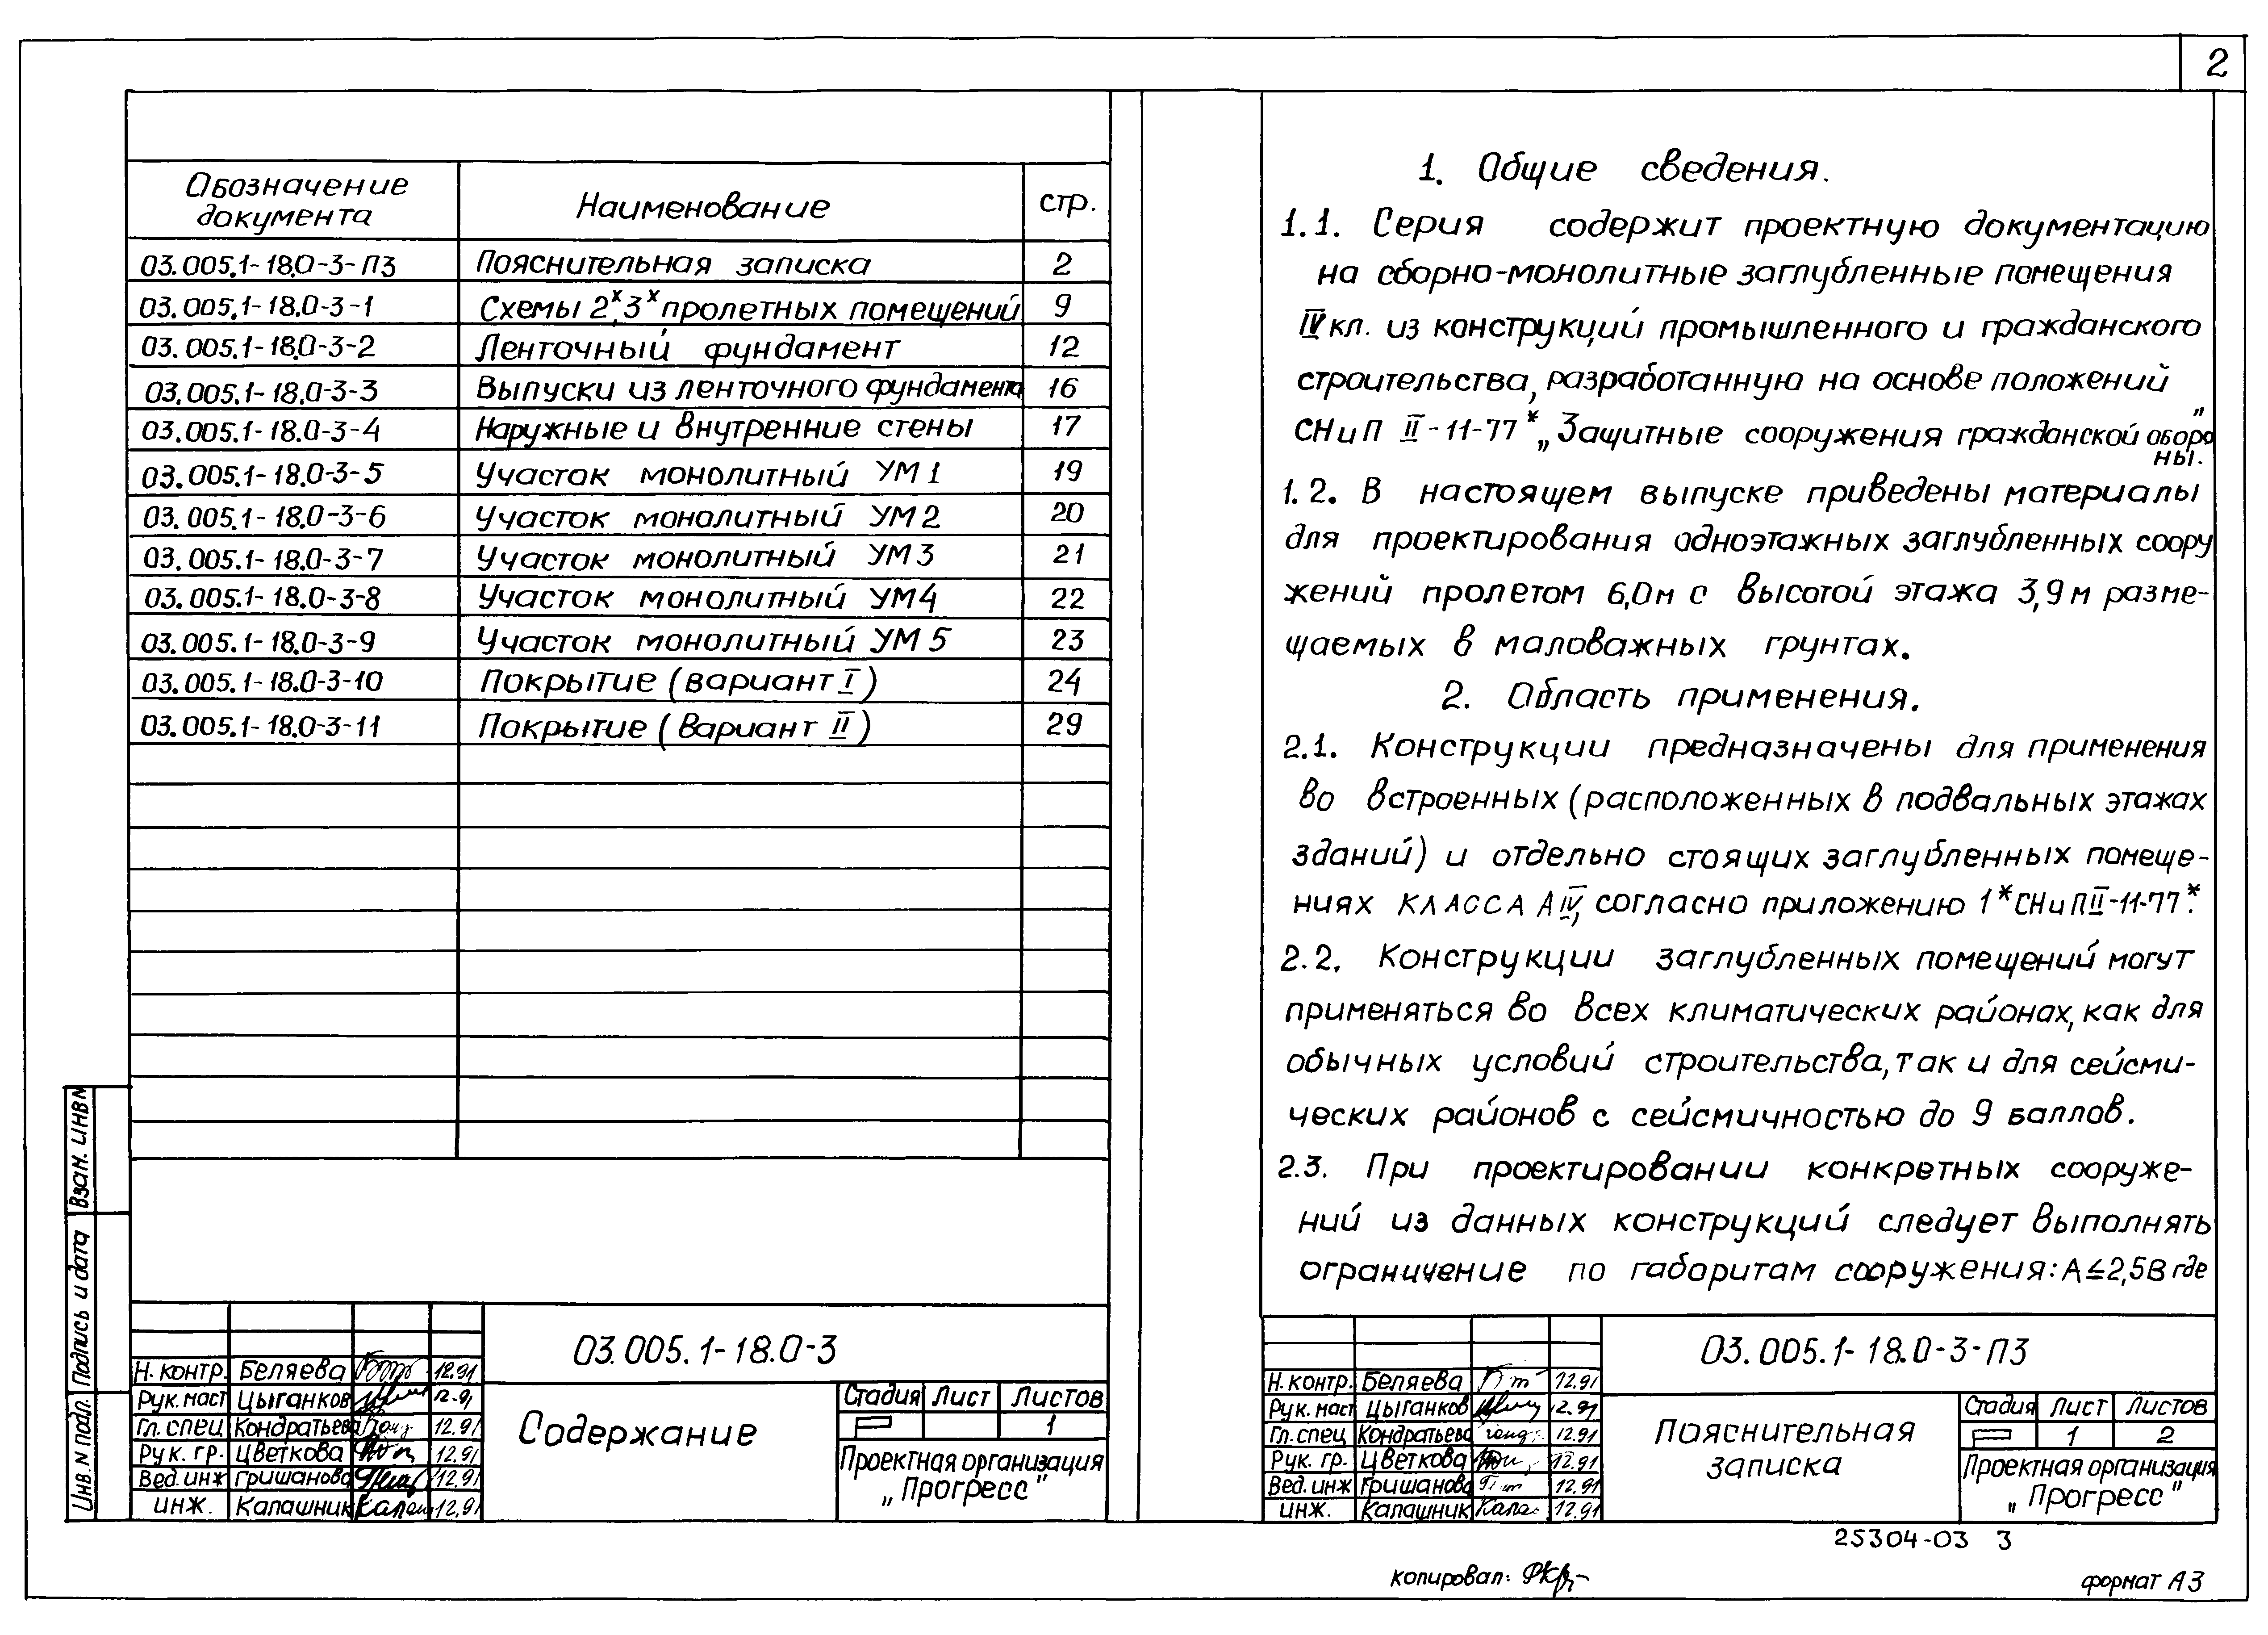 2
Обозначение документа Наименование стр.
03.005.1-18.0-3-ПЗ Пояснительная записка 2
03.005.1-18.0-3-1 Схемы 2х,3х пролетных помещений 9
03.005.1-18.0-3-2 Ленточный фундамент 12
03.005.1-18.0-3-3 Выпуски из ленточного фундамента 16
03.005.1-18.0-3-4 Наружные и внутренние стены 17
03.005.1-18.0-3-5 Участок монолитный УМ1 19
03.005.1-18.0-3-6 Участок монолитный УМ2 20
03.005.1-18.0-3-7 Участок монолитный УМ3 21
03.005.1-18.0-3-8 Участок монолитный УМ4 22
03.005.1-18.0-3-9 Участок монолитный УМ5 23
03.005.1-18.0-3-10 Покрытие (вариант I) 24
03.005.1-18.0-3-11 Покрытие (Вариант II) 29
Взан. инв N
Подпись и дата
Инв. N подл.
03.005.1-18.0-3
Н. контр. Беляева 12.91
Рук. маст Цыганков 12.91
Гл. спец Кондратьева 12.91
Рук. гр. Цветкова 12.91
Вед. инж Гришанова 12.91
инж. Калашник 12.91
Содержание
Стадия Лист Листов
Р 1
Проектная организация
„Прогресс"
1. Общие сведения.
1.1. Серия содержит проектную документацию
на сборно-монолитные заглубленные помещения
IV кл. из конструкций промышленного и гражданского
строительства, разработанную на основе положений
СНиП II-11-77* „Защитные сооружения гражданской оборо
ны."
1.2. В настоящем выпуске приведены материалы
для проектирования одноэтажных заглубленных соору
жений пролетом 6,0м с высотой этажа 3,9м разме-
щаемых в маловажных грунтах.
2. Область применения.
2.1. Конструкции предназначены для применения
во встроенных (расположенных в подвальных этажах
зданий) и отдельно стоящих заглубленных помеще-
ниях КЛАССА А IV, согласно приложению 1* СНиП II-11-77*.
2.2. Конструкции заглубленных помещений могут
применяться во всех климатических районах, как для
обычных условий строительства, так и для сейсми-
ческих районов с сейсмичностью до 9 баллов.
2.3. При проектировании конкретных сооруже-
ний из данных конструкций следует выполнять
ограничение по габоритам сооружения: А≤2,5В где
03.005.1-18.0-3-ПЗ
Н. контр. Беляева 12.91
Рук. маст Цыганков 12.91
Гл. спец Кондратьева 12.91
Рук. гр. Цветкова 12.91
Вед. инж Гришанова 12.91
инж. Калашник 12.91
Пояснительная
записка
Стадия Лист Листов
Р 1 2
Проектная организация
„Прогресс"
25304-03 3
копировал:
формат А3